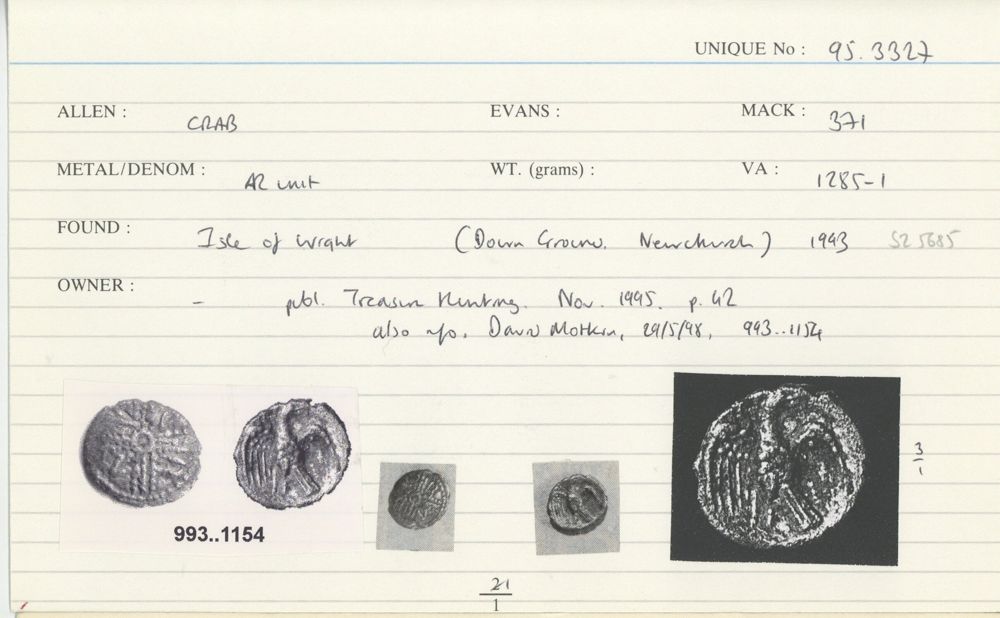 UNIQUE No : 95.3327
ALLEN : CRAB EVANS : MACK : 371
METAL/DENOM : AR unit WT. (grams) : VA : 1285-1
FOUND : Isle of Wight (Down Ground, Newchurch) 1993 SZ 5685
OWNER : - publ. Treasure Hunting, Nov. 1995, p. 42
also info. David Motkin, 29/5/98, 993..1154
3/1
993..1154
21/1